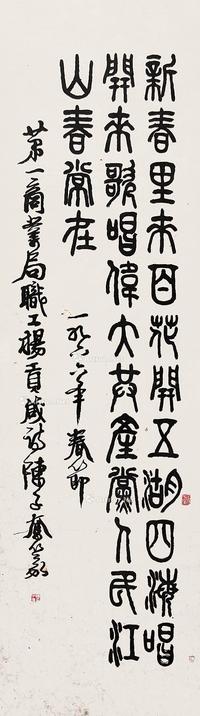 新春里來百花開五湖四海唱
開來歌唱偉大共產黨人民江
山春常在
一九六六年春節
第一商業局職工楊貢詩陳子奮篆